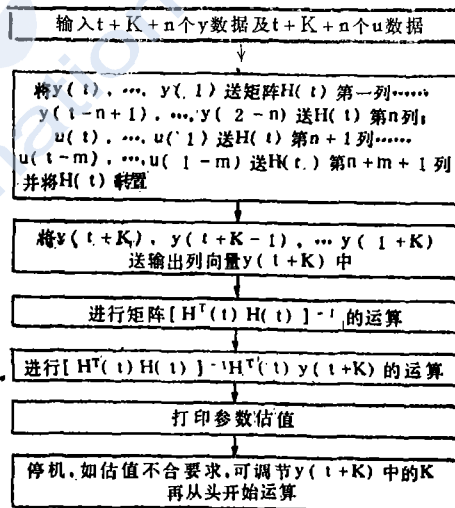 输入t+K+n个y数据及t+K+n个u数据
将y(t),…,y(1)送矩阵H(t)第一列……
y(t-n+1),…,y(2-n)送H(t)第n列;
u(t),…,u(1)送H(t)第n+1列……
u(t-m),…,u(1-m)送H(t)第n+m+1列
并将H(t)转置
将y(t+K),y(t+K-1),…y(1+K)
送输出列向量y(t+K)中
进行矩阵[Hᵀ(t)H(t)]⁻¹的运算
进行[Hᵀ(t)H(t)]⁻¹Hᵀ(t)y(t+K)的运算
打印参数估值
停机,如估值不合要求,可调节y(t+K)中的K
再从头开始运算